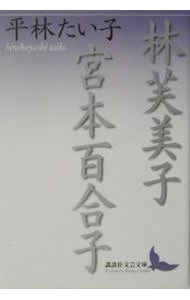 平林たい子
hirabayashi taiko
林芙美子
宮本百合子
講談社文芸文庫